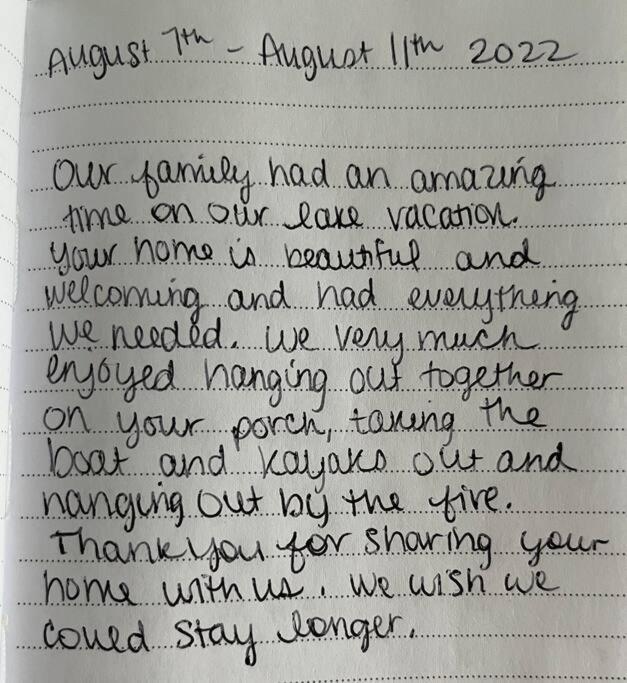 August 7th - August 11th 2022
Our family had an amazing
time on our lake vacation.
Your home is beautiful and
welcoming and had everything
we needed. We very much
enjoyed hanging out together
on your porch, taking the
boat and kayaks out and
hanging out by the fire.
Thank you for sharing your
home with us. We wish we
could stay longer.